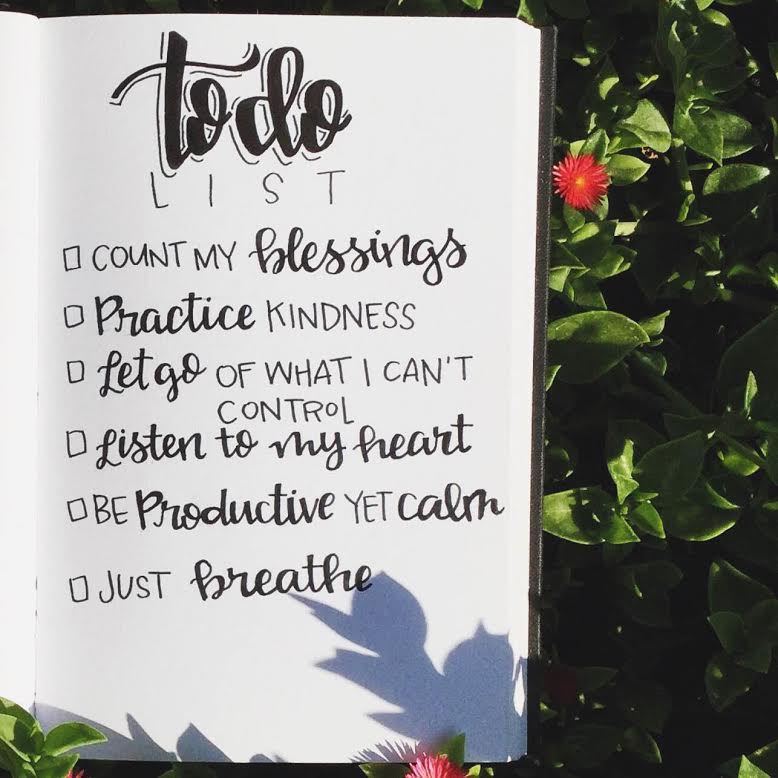 to do
LIST
COUNT MY blessings
Practice KINDNESS
Let go OF WHAT I CAN'T
CONTROL
Listen to my heart
BE Productive YET calm
JUST breathe